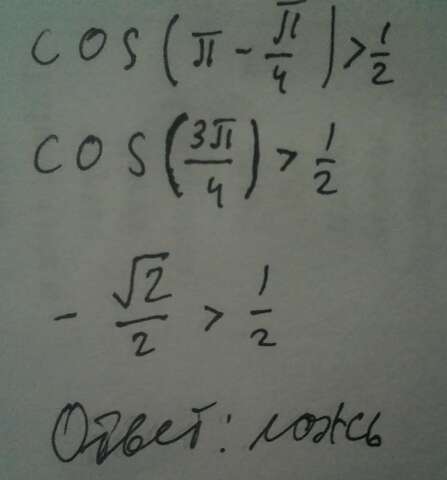 cos(π - π/4) > 1/2
cos(3π/4) > 1/2
- √2/2 > 1/2
Ответ: ложь